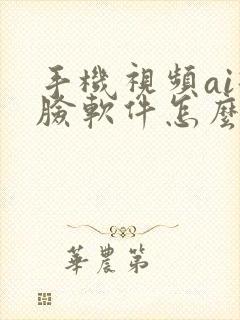 手機視頻ai
臉軟件怎麼
華農第